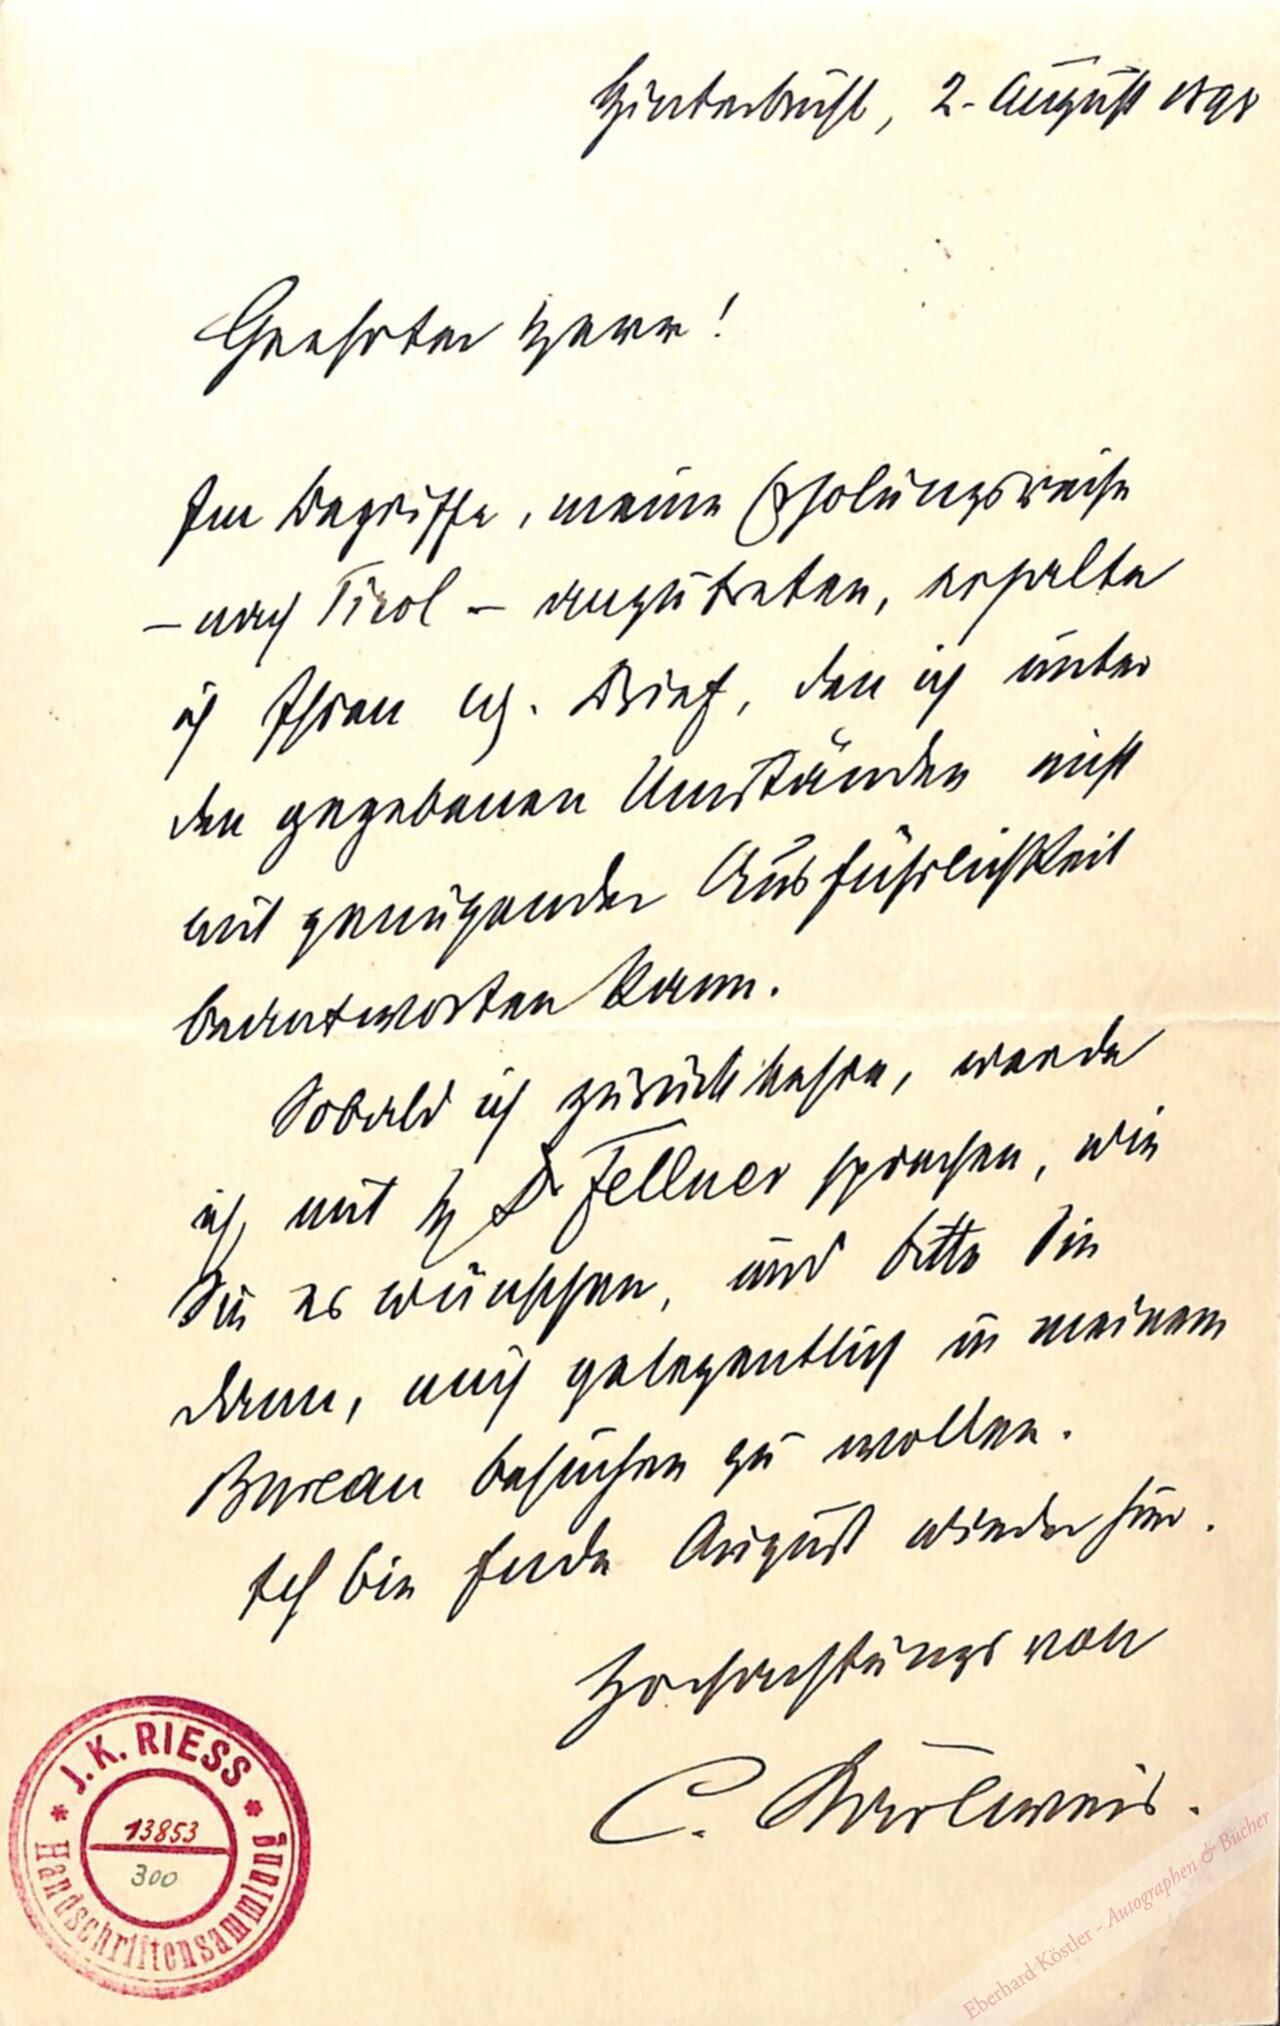 Hinterbrühl, 2. August 1898
Geehrter Herr!
Im Begriffe, meine Erholungsreise
– nach Tirol – anzutreten, erhalte
ich Ihren Brief, den ich unter
den gegebenen Umständen nicht
mit genügender Ausführlichkeit
beantworten kann.
Sobald ich zurückkehre, werde
ich mit H Dr Fellner sprechen, wie
Sie es wünschen, und bitte Sie
dann, mich gelegentlich in meinem
Bureau besuchen zu wollen.
Ich bin Ende August wieder hier.
Hochachtungsvoll
C. Karlweis.
J. K. RIESS
Handschriftensammlung
13853
300
Eberhard Köstler - Autographen & Bücher